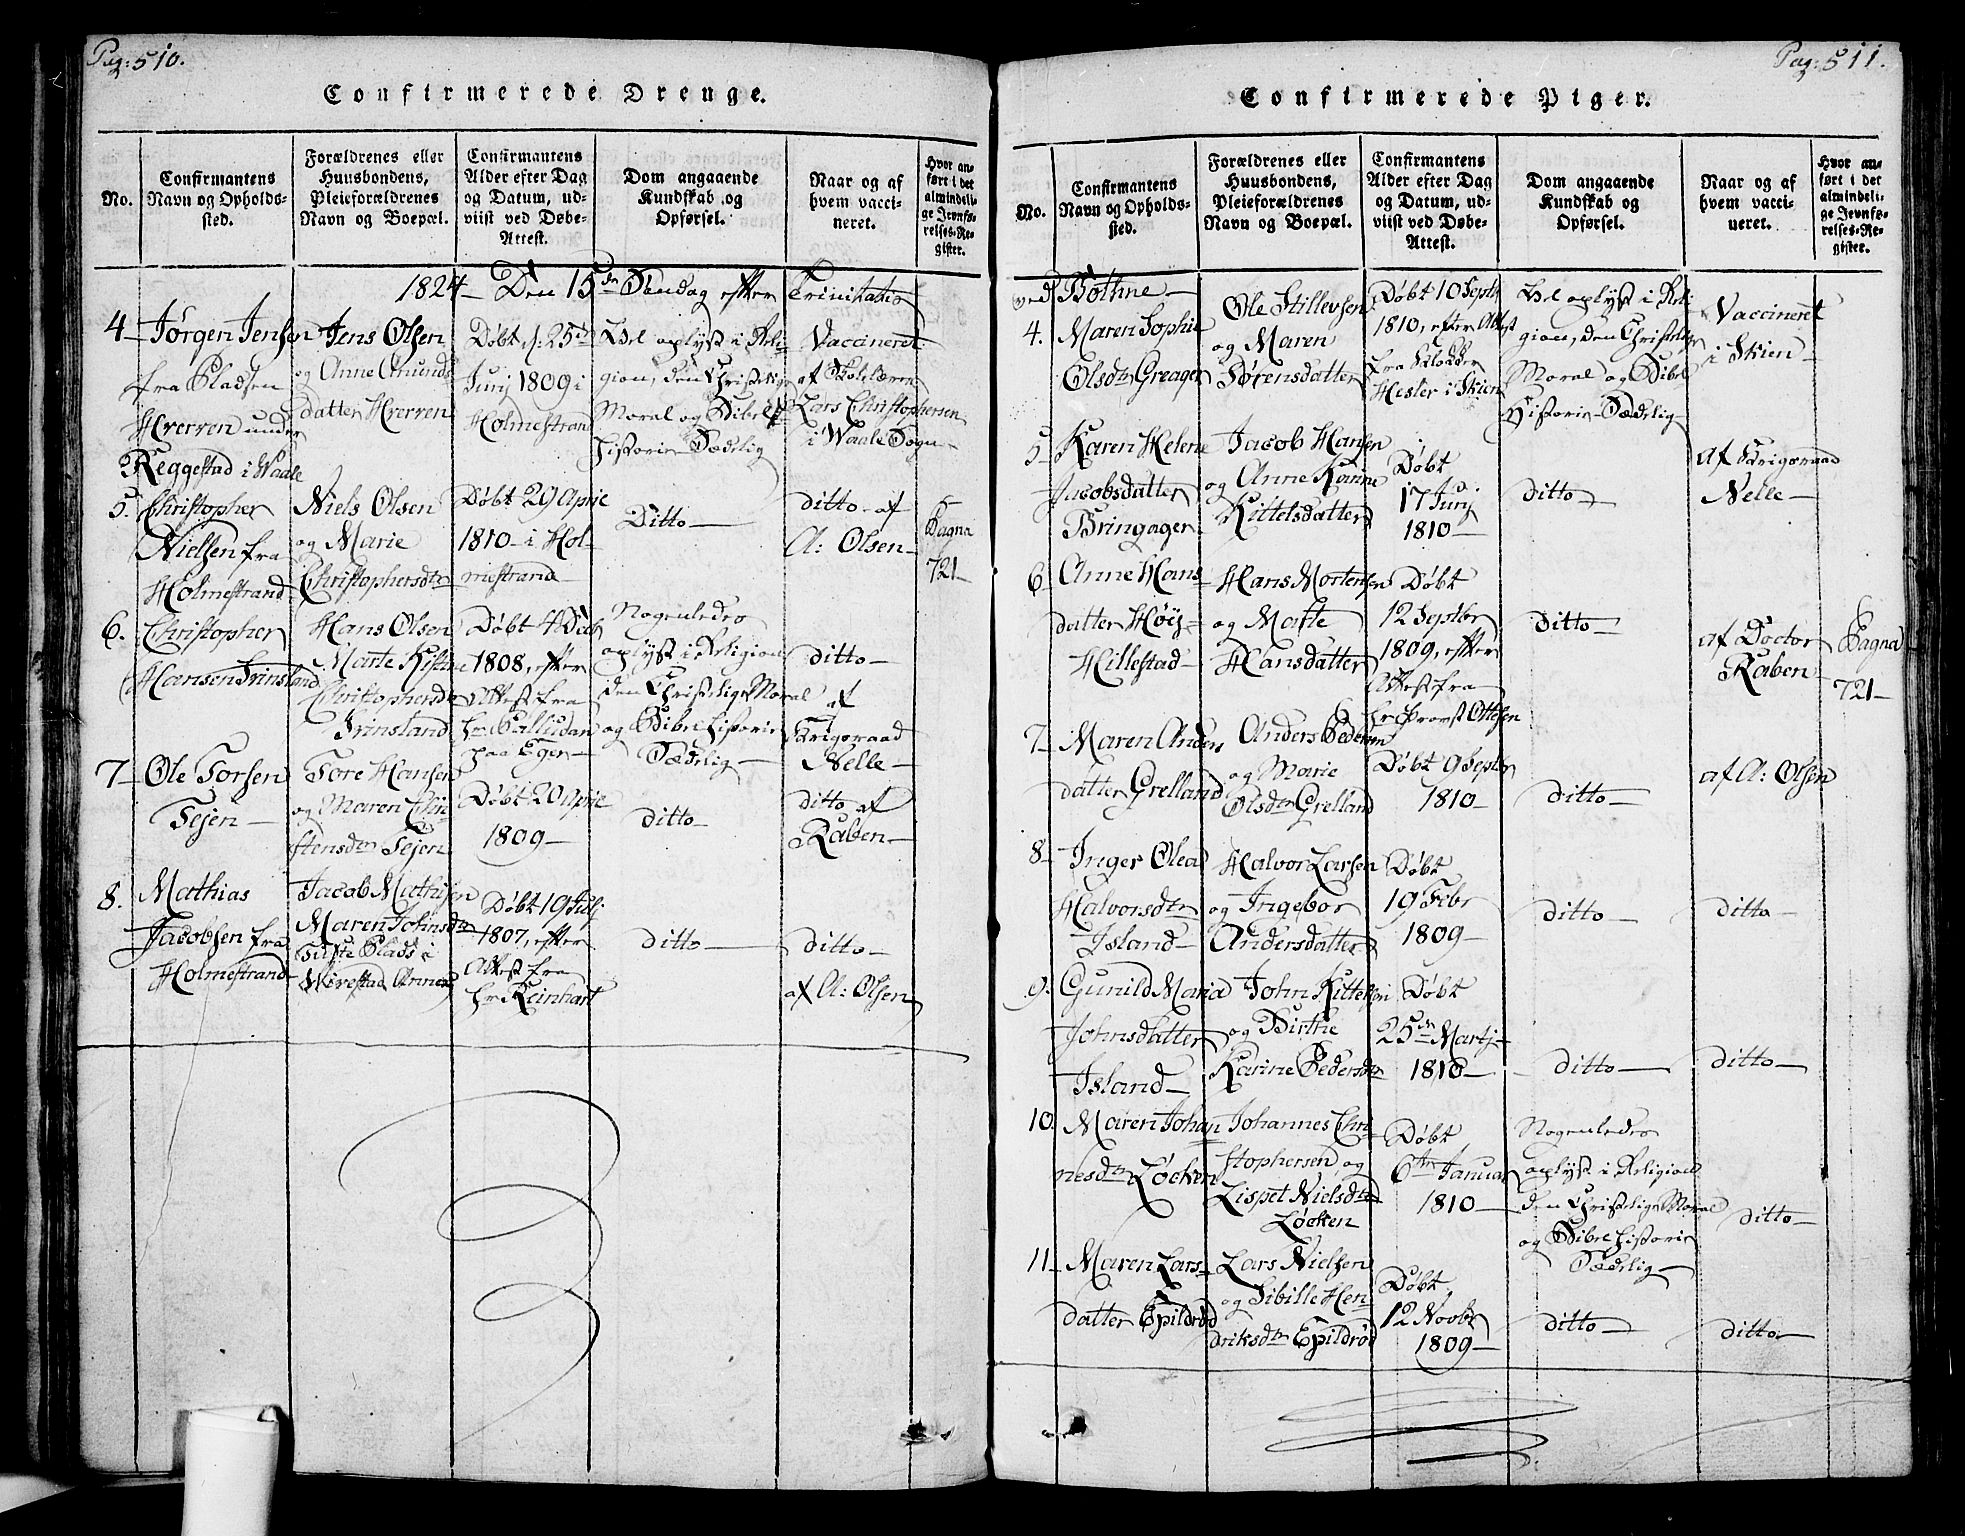 Pag: 510.
Confirmerede Drenge.
No.
Confirmantens
Navn og Opholds-
sted.
Forældrenes eller
Huusbondens,
Pleieforældrenes
Navn og Boepæl.
Confirmantens
Alder efter Dag
og Datum, ud-
viist ved Døbe-
Attest.
Dom angaaende
Kundskab og
Opførsel.
Naar og af
hvem vacci-
neret.
Hvor an-
ført i det
almindeli-
ge Jevnfø-
relses-Re-
gister.
1824 Den 15de Søndag efter Trinitatis
4 Jørgen Jensen
fra Pladsen
Hverven under
Reggestad i Waale
Jens Olsen
og Anne Amunds
datter Hverven
Døbt d: 25de
Junj 1809 i
Holmestrand
Vel oplyst i Reli
gion, den Christelige
Moral og Bibel
historie Sædelig
Vaccineret
af Skolelærer
Lars Christophersen
i Waale Sogn
5. Christopher
Nielsen fra
Holmestrand
Niels Olsen
og Marie
Christophersdtr
Døbt 29 Aprie
1810 i Hol-
mestrand
Ditto
ditto af
A: Olsen
Pagna
721
6. Christopher
Hansen Frinsland
Hans Olsen
Marte Kistine
Christophersdr
Frinsland
Døbt 4 Decb
1808, efter
Attest fra
Hr Palludan
paa Eger
Nogenledes
oplyst i Religion
den Christelige Moral
og Bibelhistorie
Sædelig
ditto
af
Krigsraad
Nelle
7 Ole Torsen
Tejen
Tore Hansen
og Maren Chri
stensdtr Tejen
Døbt 20 Aprie
1809
ditto
ditto af
Raben
8. Mathias
Jacobsen fra
Holmestrand
Jacob Mathisen
Maren Johnsdtr
Plads i
Døbt 19 Julj
1807, efter
Attest fra
Hr Reinhart
ditto
ditto
af A: Olsen
Pag: 511.
Confirmerede Piger.
No.
Confirmantens
Navn og Opholds-
sted.
Forældrenes eller
Huusbondens,
Pleieforældrenes
Navn og Boepæl.
Confirmantens
Alder efter Dag
og Datum, ud-
viist ved Døbe-
Attest.
Dom angaaende
Kundskab og
Opførsel.
Naar og af
hvem vacci-
neret.
Hvor an-
ført i det
almindeli-
ge Jevnfø-
relses-Re-
gister.
ved Bothne
4. Maren Sophie
Olsdtr Greager
Ole Stillevsen
og Maren
Sørensdatter
Døbt 10 Septb
1810, efter Attest
fra Klokker
Hesler i Skien
Vel oplyst i Reli
gion, den Christelige
Moral og Bibel
Historie Sædelig
Vaccineret
i Skien
5 Karen Helene
Jacobsdatter
Bringager
Jacob Hansen
og Anne Karine
Kittelsdatter
Døbt
17 Junj
1810
ditto
af Krigsraad
Nelle
6 Anne Hans
datter Høij
Hillestad
Hans Mortensen
og Marte
Hansdatter
Døbt
12 Septbr
1809, efter
Attest fra
Hr Provst Ottesen
ditto
af Doctor
Raben
Pagna
721
7 Maren Anders
datter Grelland
Anders Pedersen
og Marie
Olsdtr Grelland
Døbt 9 Septbr
1810
ditto
af A: Olsen
8 Inger Olea
Halvorsdtr
Island
Halvor Larsen
og Ingebor
Andersdatter
Døbt
19 Febr
1809
ditto
ditto
9. Gunild Maria
Johnsdatter
Island
John Kittelsen
og Birthe
Karine Pedersdtr
Døbt
25de Martj
1810
ditto
ditto
10. Maren Johan
nesdtr Løcken
Johannes Chri
stophersen og
Lispet Nielsdtr
Løcken
Døbt
6te Januar
1810
Nogenledes
oplyst i Religion
den Christelige Moral
og Bibelhistorie
Sædelig
ditto
11 Maren Lars
datter Epildrød
Lars Nielsen
og Sibille Hen
driksdtr Epildrød
Døbt
12 Novbr
1809
ditto
ditto